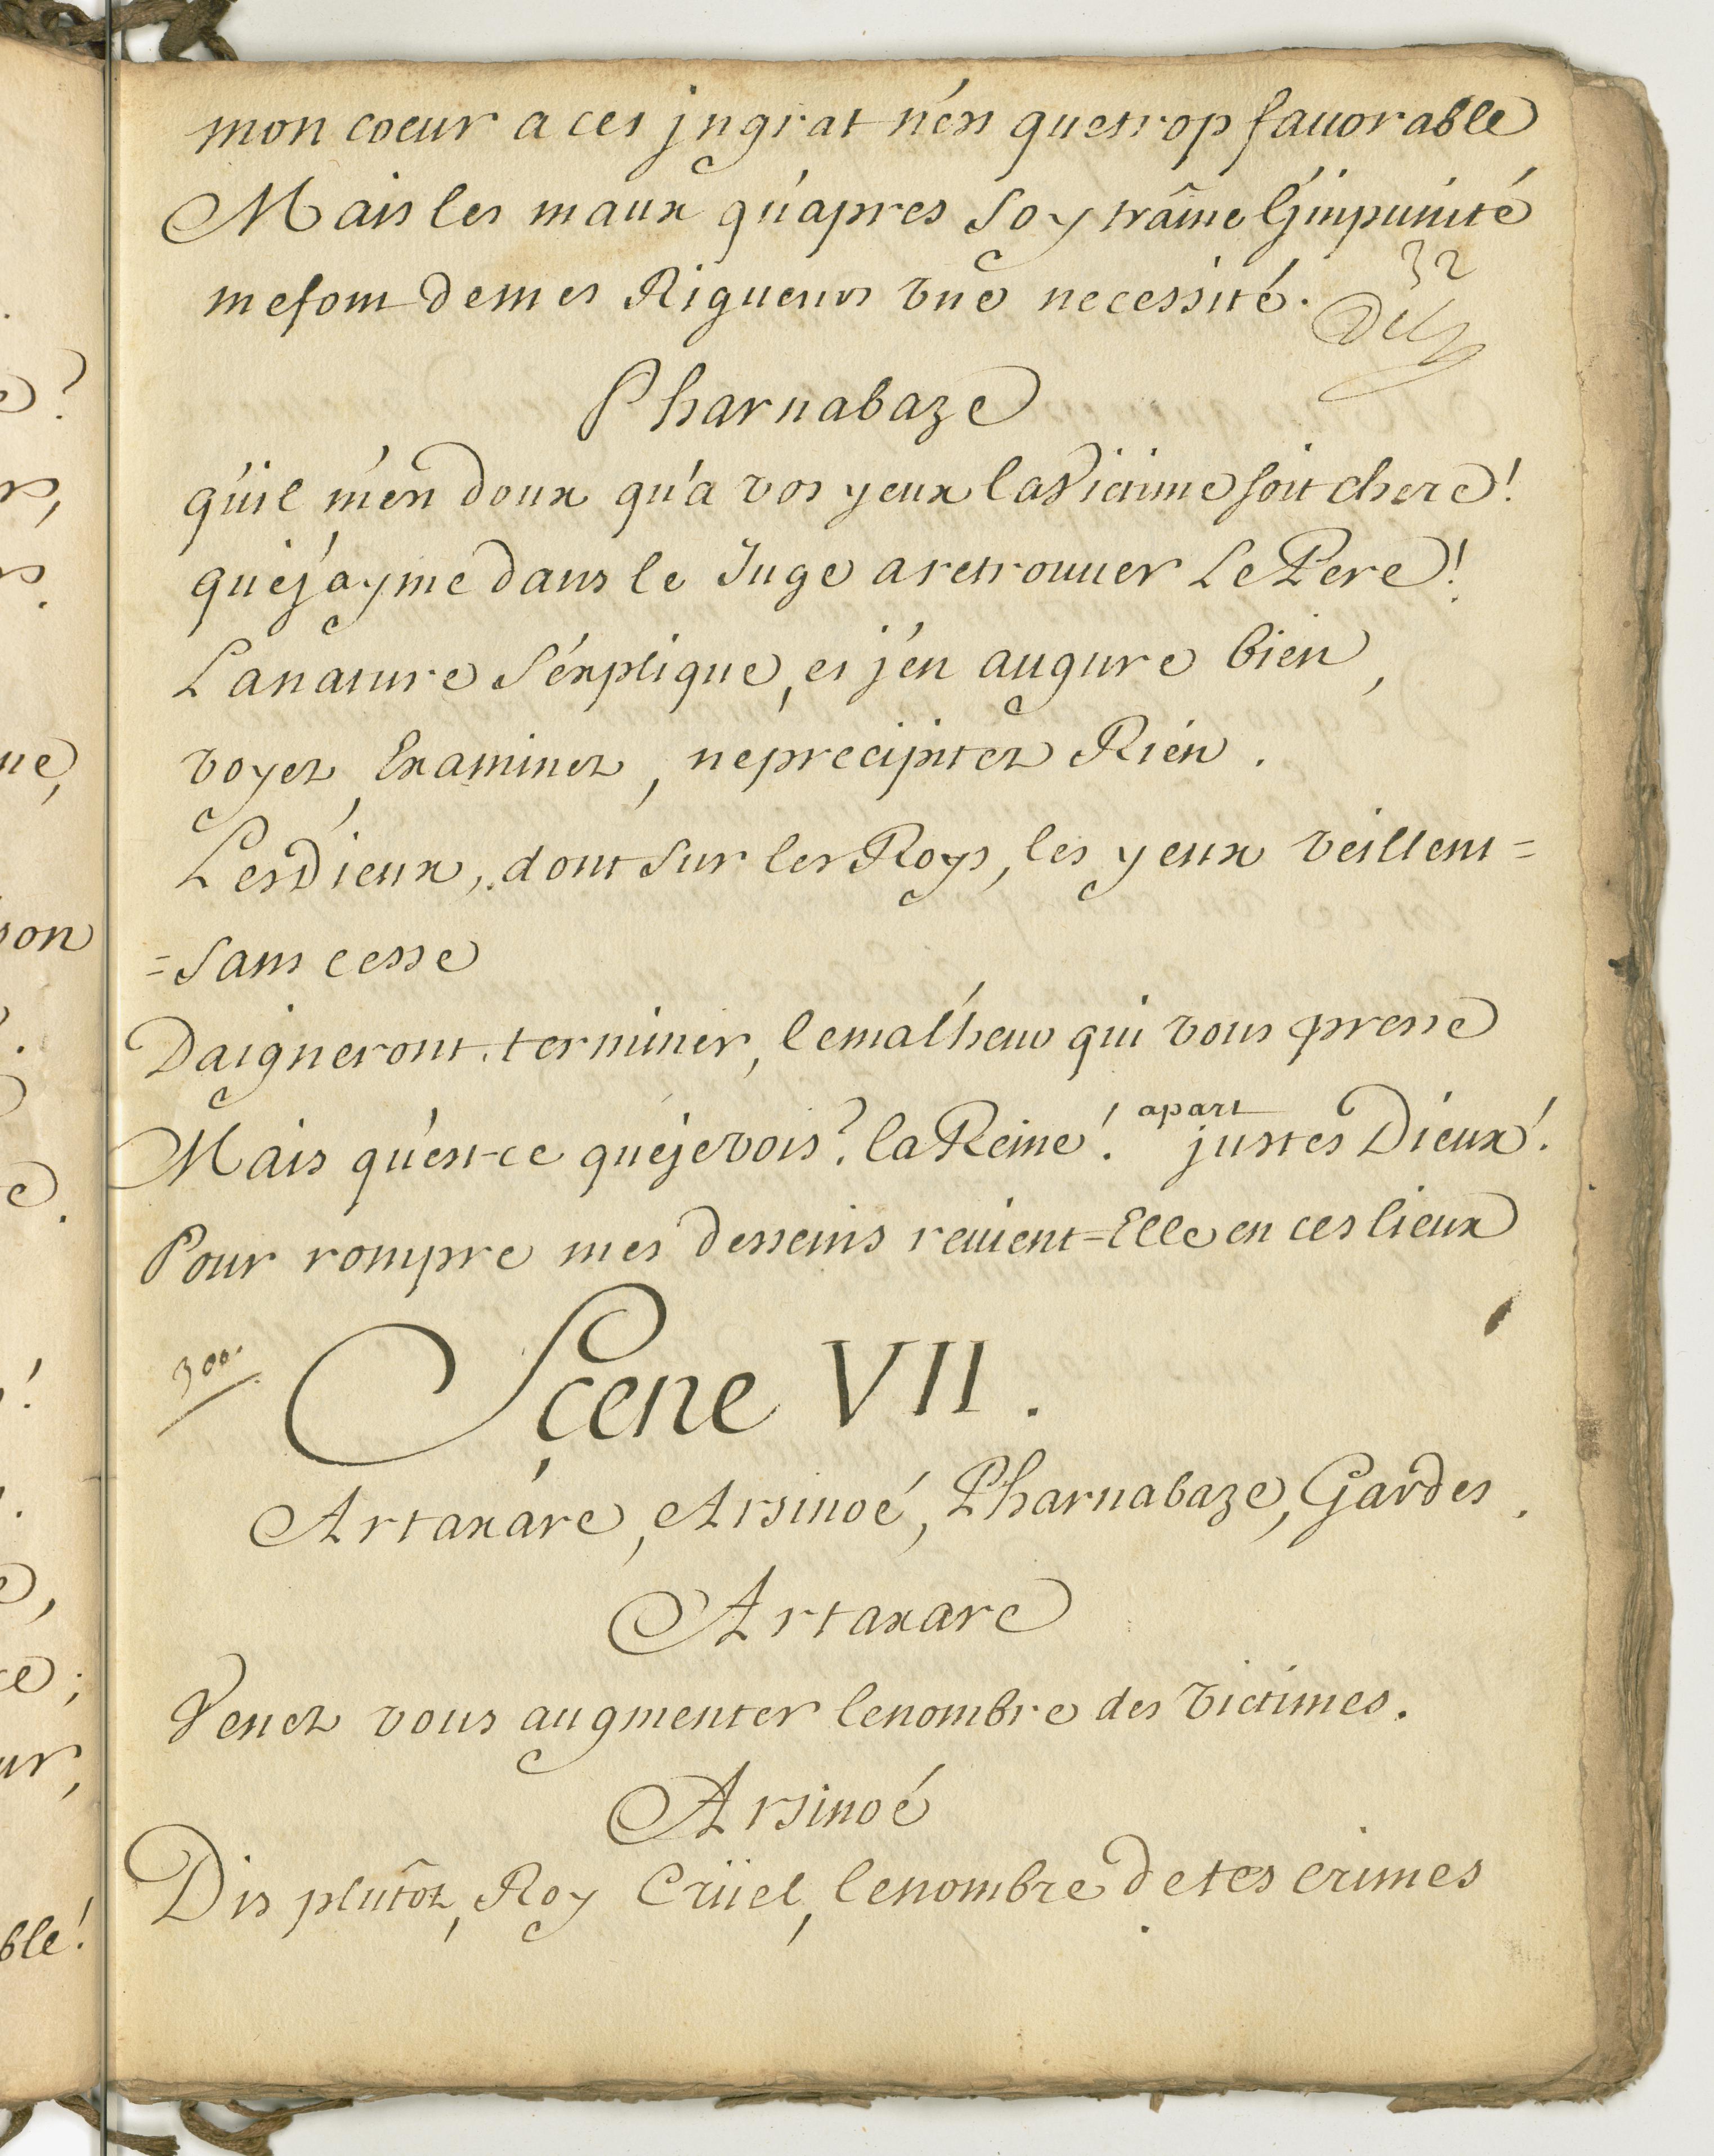 mon coeur a cet jngrat n'est que trop fauorable
Mais les maux qu'apres soy traîne l'jmpunité
me font de mes Rigueurs vne necessité.
32
Pharnabaze
qu'il m'est doux qu'a vos yeux la Victime soit chere!
que j'ayme dans le Juge a retrouuer Le Pere!
La nature s'explique, et j'en augure bien,
voyez, Examinez, ne precipitez Rien.
Les Dieux, dont sur les Roys, les yeux veillent=
=sans cesse
Daigneront terminer, le malheur qui vous presse
Mais qu'est-ce que je vois? la Reine! apart justes Dieux!
Pour rompre mes desseins reuient=Elle en ces lieux
300.
Sçene VII.
Artaxare, Arsinoé, Pharnabaze, Gardes.
Artaxare
Venez vous augmenter le nombre des victimes.
Arsinoé
Dis plutôt, Roy Crüel, le nombre de tes crimes
ble!